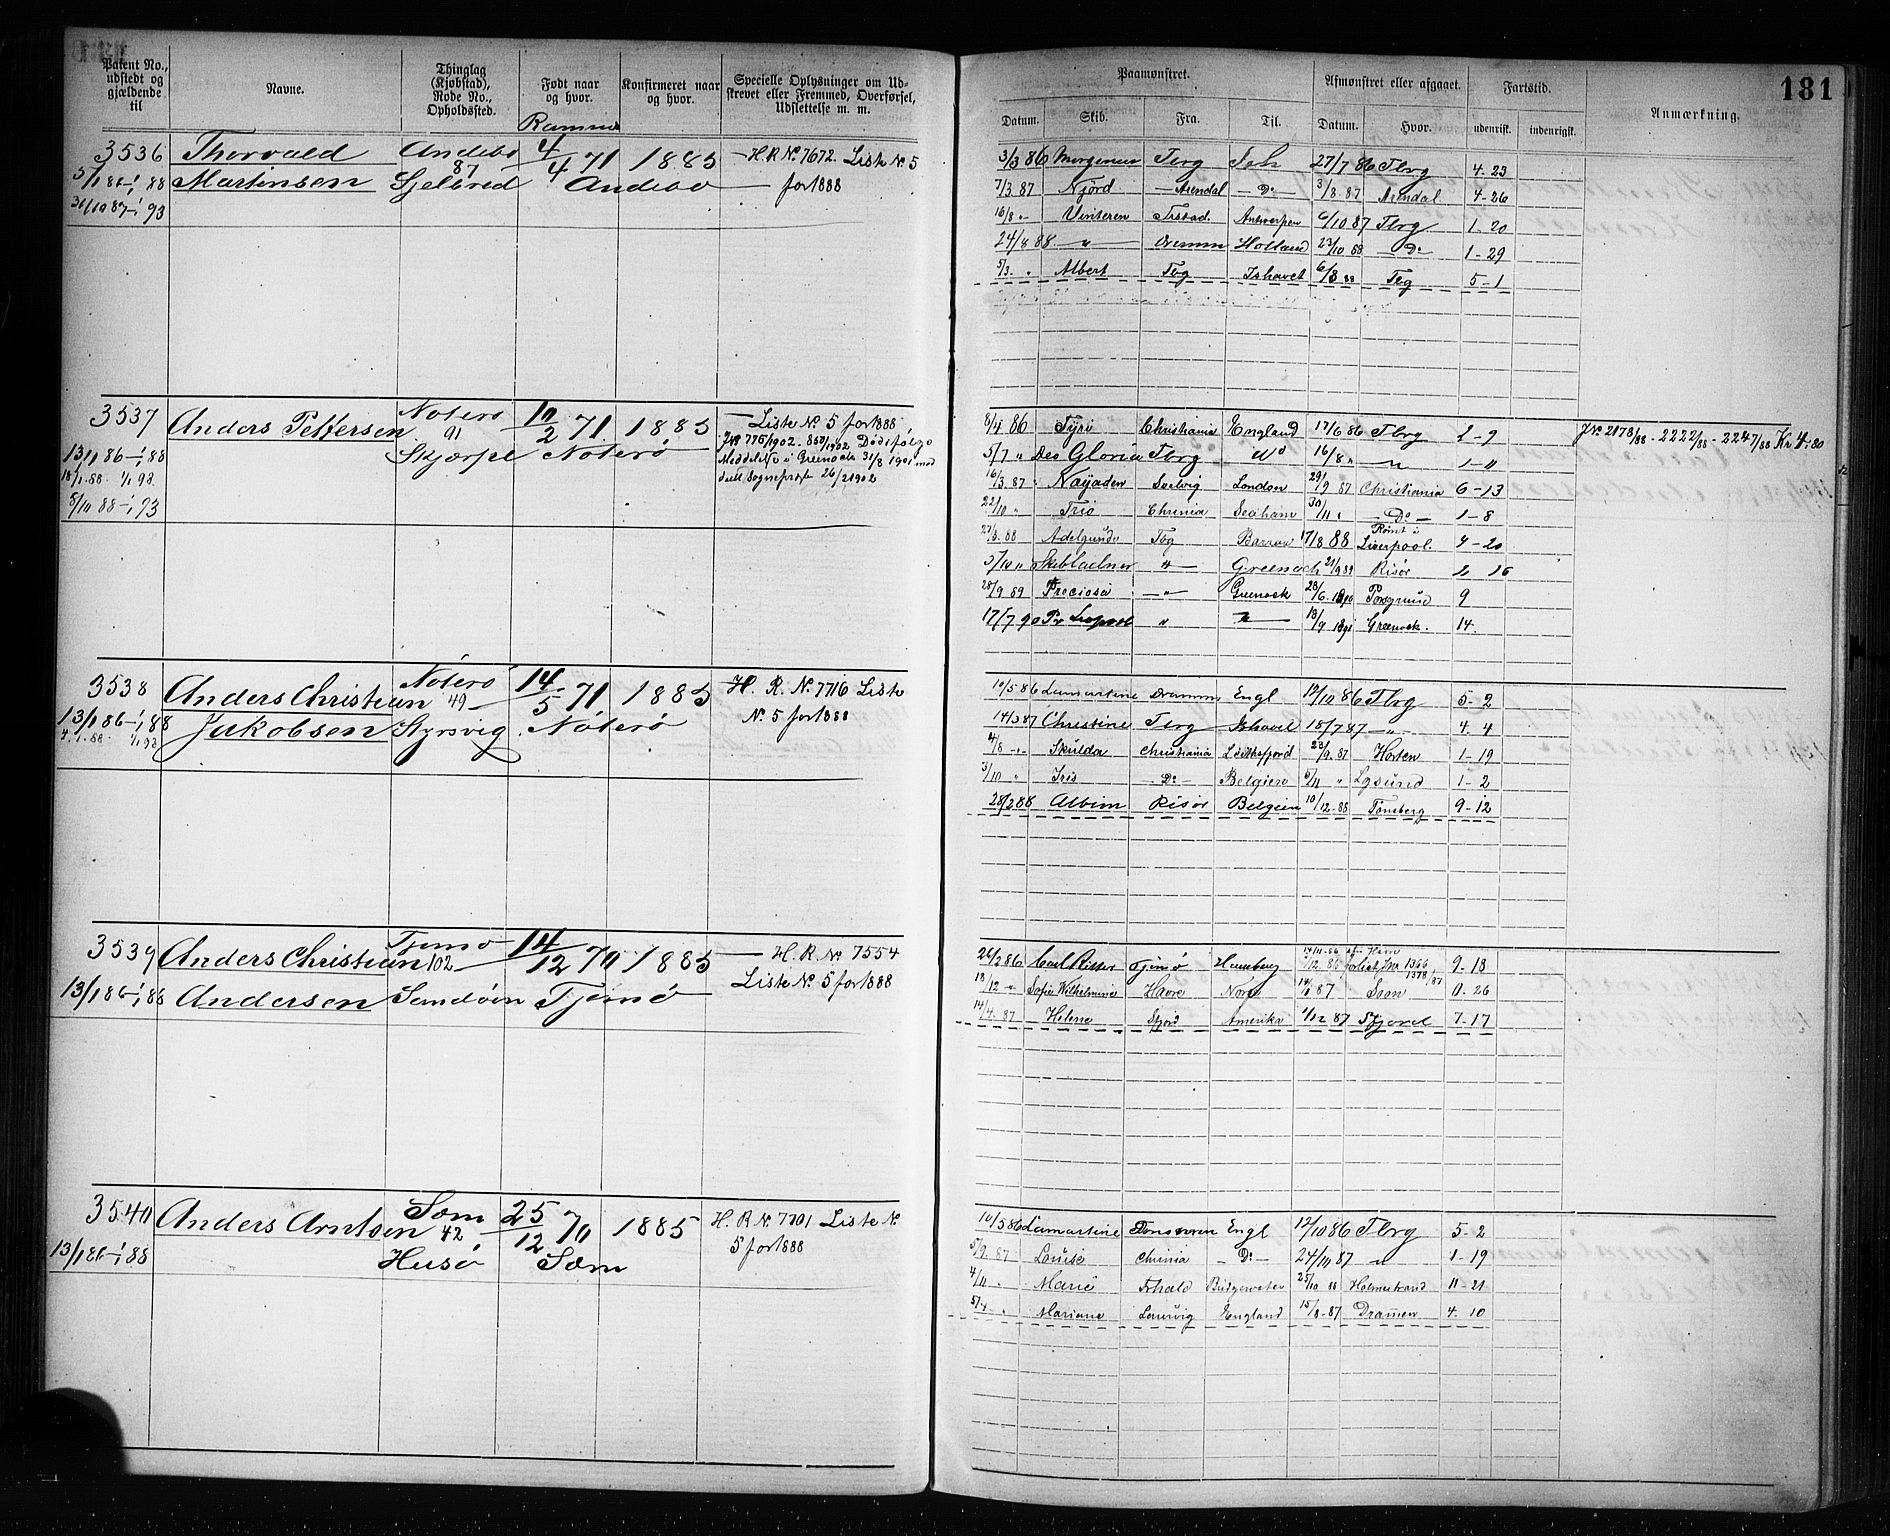 181
Patent No., udstedt og gjældende til
Navne.
Thinglag (Kjøbstad), Rode No., Opholdssted.
Født naar og hvor.
Konfirmeret naar og hvor.
Specielle Oplysninger om Udskrevet eller Fremmed, Overførsel, Udslettelse m. m.
Paamønstret.
Afmønstret eller afgaaet.
Fartstid.
Anmærkning.
Datum. Skib. Fra. Til. Datum. Hvor. udenrigsk. indenrigsk.
Ramnes
3536 Thorvald Andebo 4/4 71 1885 — H. R. No. 7672. Liste No. 5
5/1 86 - 1/1 88 Martinsen 87 Sjelbred Andebo for 1888
31/10 87 - 1/1 93
3/3 86 Morgenen Tbrg Ish 27/7 86 Tbrg 4-23
7/3 87 Njord — Arendal — Do 3/8 87 Arendal 4-26
16/8 " Vinteren Frstad. Antwerpen 6/10 87 Tbrg 1-20
24/8 88 — " — Dramm Holland 23/10 88 — Do 1-29
5/3 " Albert Tbg Ishavet 6/8 88 Tbg 5-1
3537 Anders Pettersen Nøterø 10/2 71 1885 — Liste No. 5 for 1888
91
13/1 86 - 1/1 88 Skjærpe Nøterø
JNo 775/1902. 850/1902 Dødsfølge
Meddelelse i Greenock 31/8 1901 med
18/1 88 1/1 93.
8/10 88 - 1/1 93
6/4 86 Tyri Christiania England 17/6 86 Tbrg 2-9
JNo. 2178/88 - 2222/88 - 2247/88 Kr 4.80
5/7 " Deo Gloria Tbrg Do 16/8 " — " — 1-11
16/3 87 Najaden Svelvig London 29/9 87 Christiania 6-13
22/10 " Trio Chrania Seaham 30/11 " — Do — 1-8
27/3 88 Adelgunde Tbg Barrow 17/8 88 Rømt i Liverpool. 4-20
5/10 " Skibladner " — Greenock 21/9 89 Risør 2 16
28/9 89 Preciosa — " — Greenock 28/6 1890 Porsgrund 9
17/7 90 Pr Leopold " " — 18/9 1891 Greenock. 14.
3538 Anders Christian Nøterø 14/5 71 1885 — H. R. No. 7716 Liste
13/1 86 - 1/1 88 Jakobsen 49 — Styrsvig. Nøterø No. 5 for 1888
4/1 88 1/1 93
10/5 86 Lamartine Dramm Engl 12/10 86 Tbrg 5-2
14/3 87 Christine Tbrg Ishavet 18/7 87 — " 4-4
4/8 - " - Skulda Christiania 23/9 87 Horten 1-19
3/10 " Iris — Do — Belgien 5/11 " Lysund 1-2
28/2 88 Albion Risør Belgien 10/12 - 88 Tønsberg 9-12
3539 Anders Christian Tjømø 14/12 70 1885 — H. R. No 7554
13/1 86 - 1/1 88 Andersen 102 — Sandøen Tjømø Liste No. 5 for 1888
26/2 86 Carl Ritter Tjømø Hamburg 9-18
18/12 " Sofie Wilhelmine Havre Norge 87 Soon 0.26
14/4 - 87 Helene Sfjord Amerika 1/12 87 Sfjord 7-17
3540 Anders Arntsen Sæm 25/12 70 1885 H. R. No. 7701 Liste No.
13/1 86 - 1/1 88 42 — Husø Sæm 5 for 1888
10/5 86 Lamartine Engl 12/10 86 Tbrg 5-2
5/9 87 Louise Chrania — Do — 24/10 87 " 1-19
4/11 " Marie Frhald Bridgewater 25/10 88 Holmestrand 11-21
5/4 " Mariane Laurvig England 15/8 - 87 Drammen 4.10